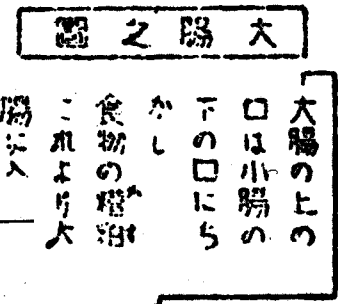 大腸之圖
大腸の上の
口は小腸の
下の口にち
かし
食物の糟粕
これより大
腸に入